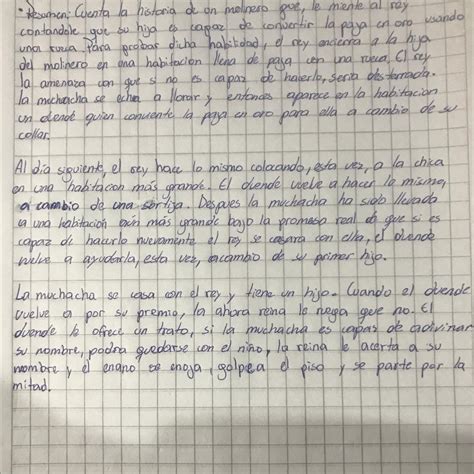 • Resumen: Cuenta la historia de un molinero que, le miente al rey
contandole que su hija es capaz de convertir la paja en oro usando
una rueca. Para probar dicha habilidad, el rey encierra a la hija
del molinero en una habitacion llena de paja con una rueca, El rey
la amenaza con que si no es capaz de hacerlo, seria desterrada.
la muchacha se echa a llorar y entonces aparece en la habitacion
un duende quien convierte la paja en oro para ella a cambio de su
collar.
Al dia siguiente, el rey hace lo mismo colocando, esta vez, a la chica
en una habitacion más grande. El duende vuelve a hacer lo mismo,
a cambio de una sortija. Despues la muchacha ha sido llevada
a una habitacion aún más grande bajo la promesa real de que si es
capaz de hacerlo nuevamente el rey se casara con ella, el duende
vuelve a ayudarla, esta vez, acambio de su primer hijo.
La muchacha se casa con el rey y tiene un hijo. Cuando el duende
vuelve a por su premio, la ahora reina le niega que no. El
duende le ofrece un trato, si la muchacha es capas de adivinar
su nombre, podra quedarse con el niño, la reina le acerta a su
nombre y el enano se enoja, golpea el piso y se parte por la
mitad.